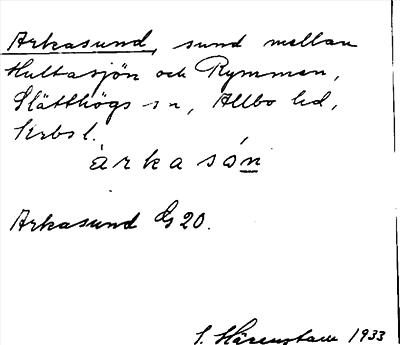 Arkasund, sund mellan
Hultasjön och Rymmen,
Slätthögs sn, Allbo hd,
Krbs l.
àrkasón
Arkasund G 20.
S. Hårenstam 1933